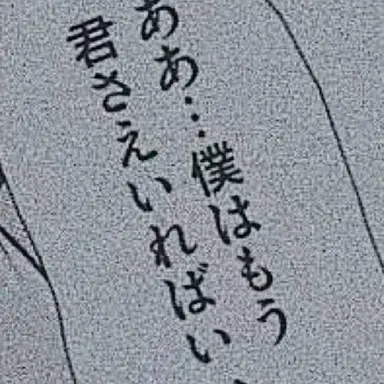 ああ…僕はもう
君さえいればい